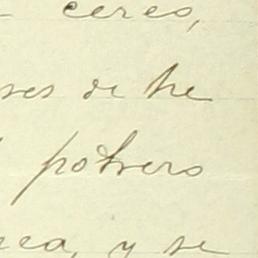 ceres,
res de tre
potrero
rea, y se